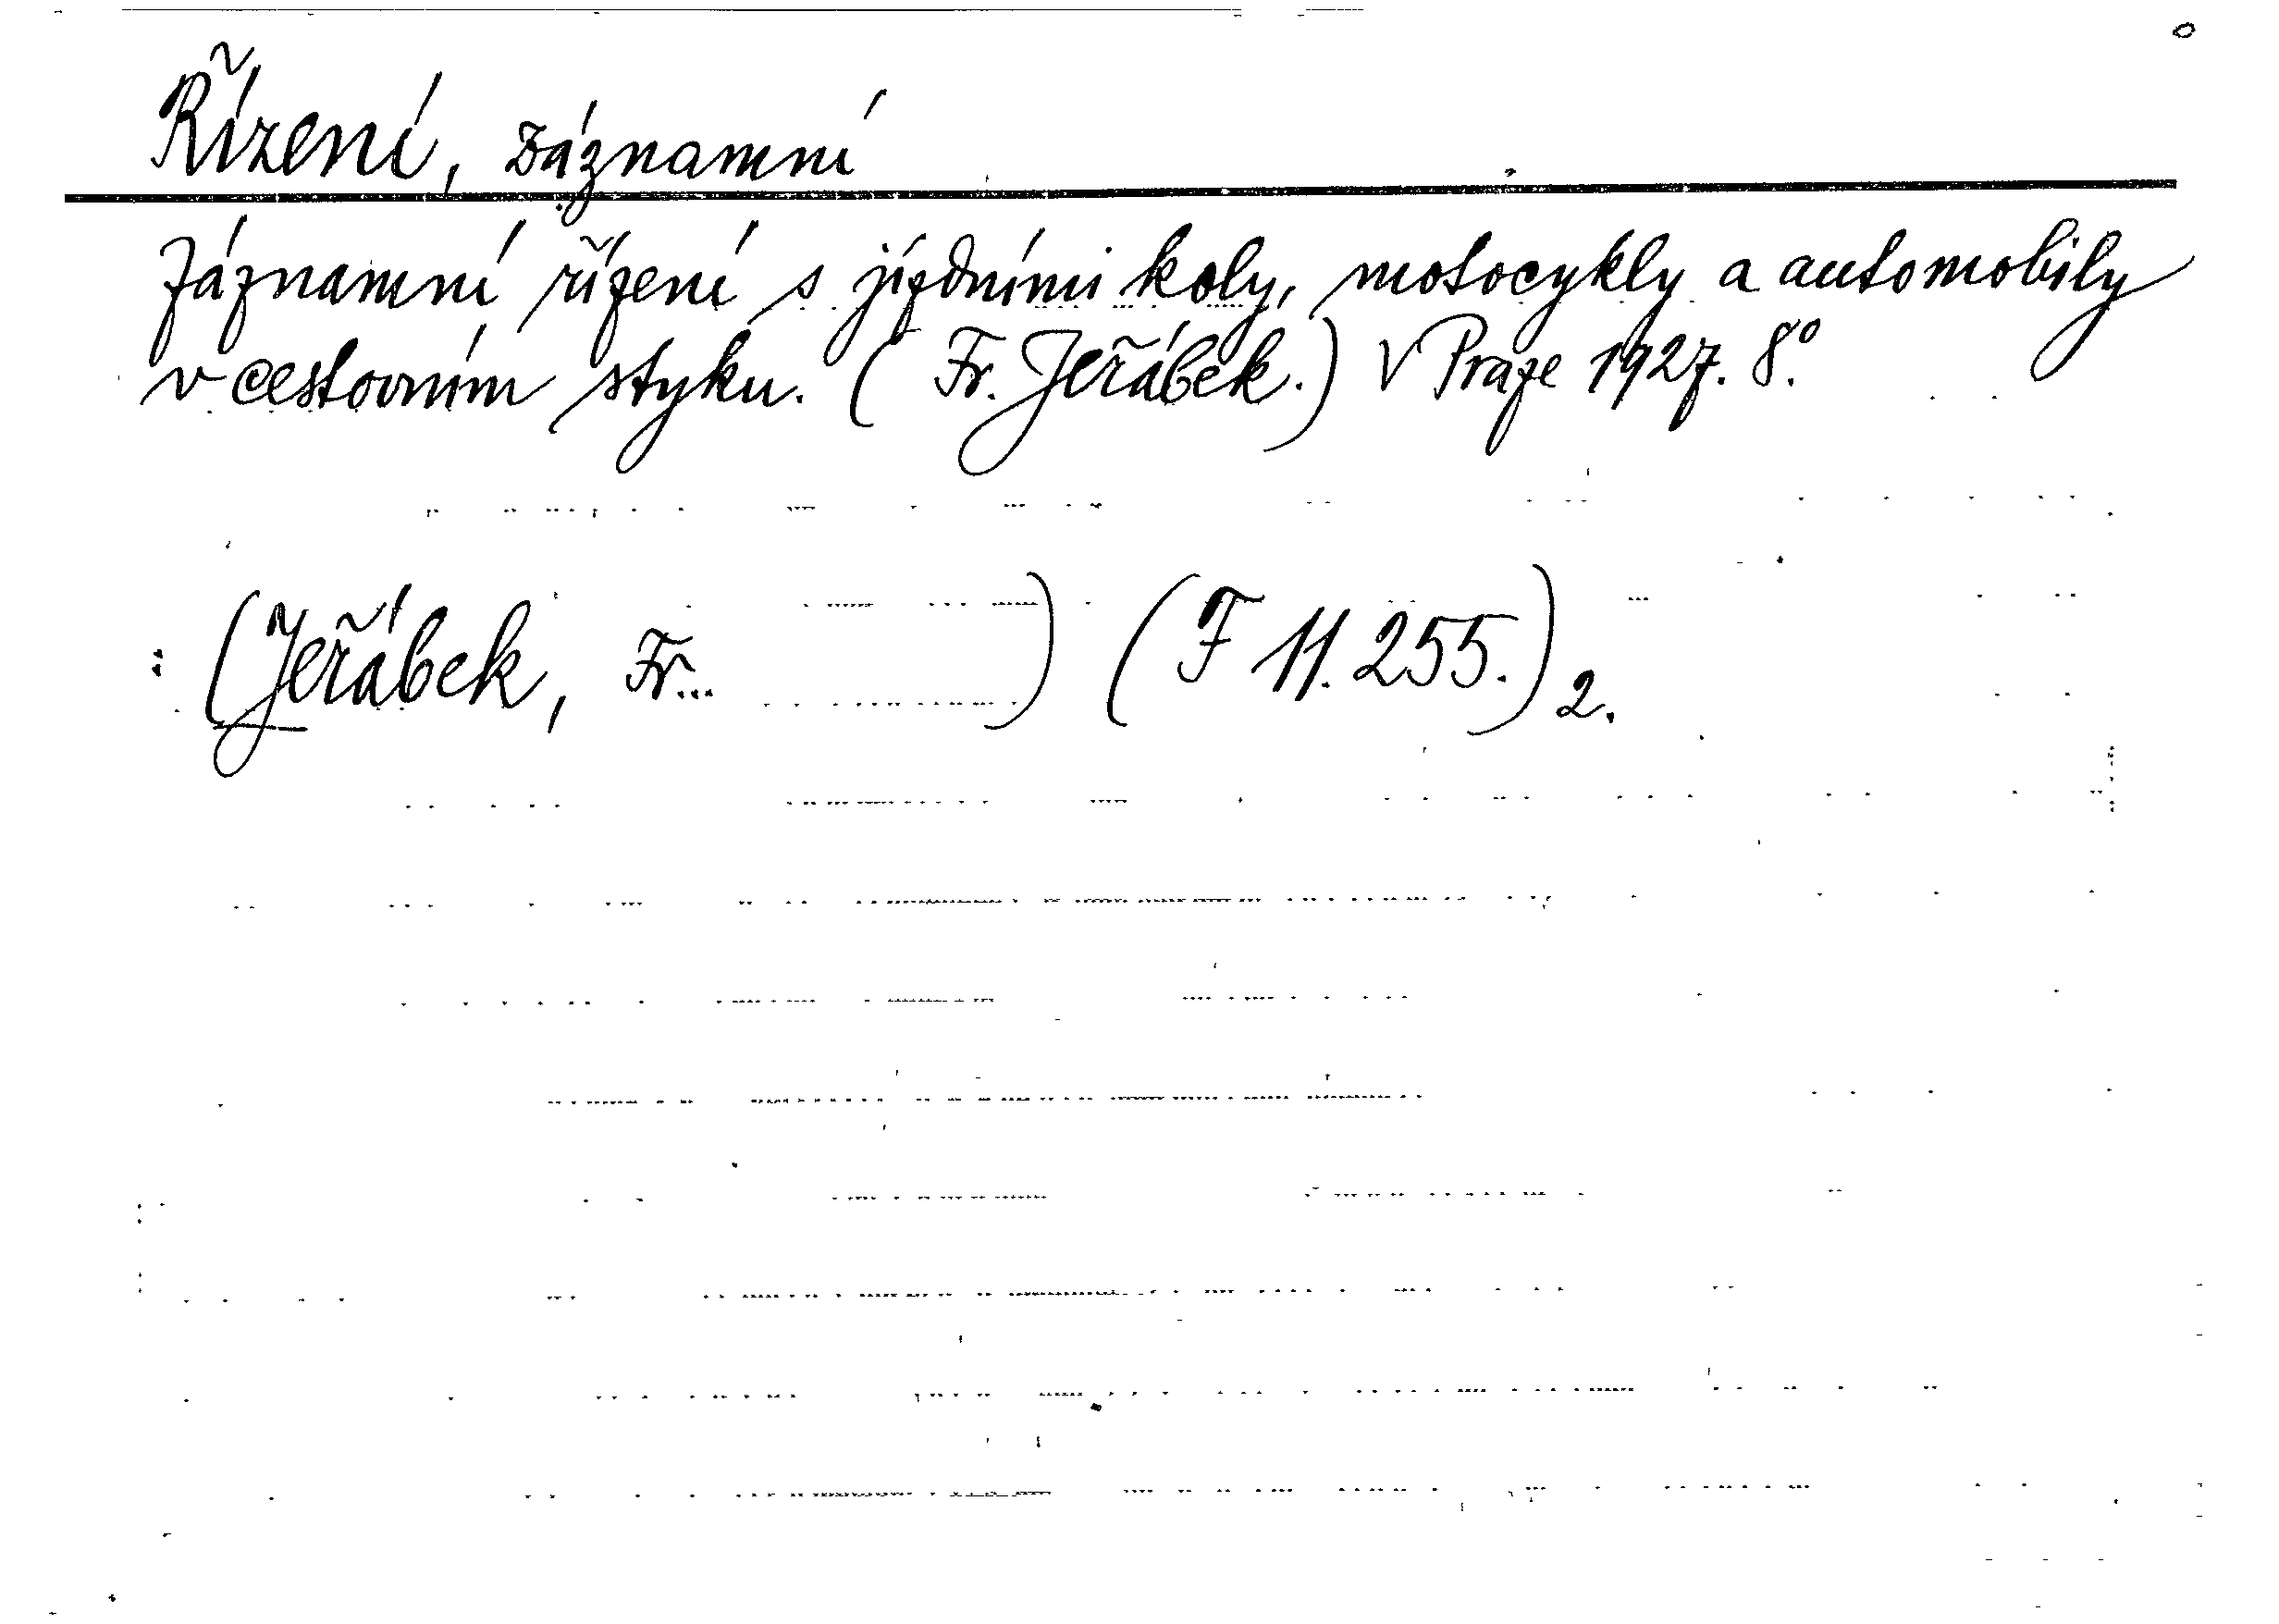 Řízení, záznamní
Záznamní řízení s jízdními koly, motocykly a automobily
v cestovním styku. (Fr. Jeřábek.) V Praze 1927. 8°.
(Jeřábek, Fr...) (F 11.255.) 2.